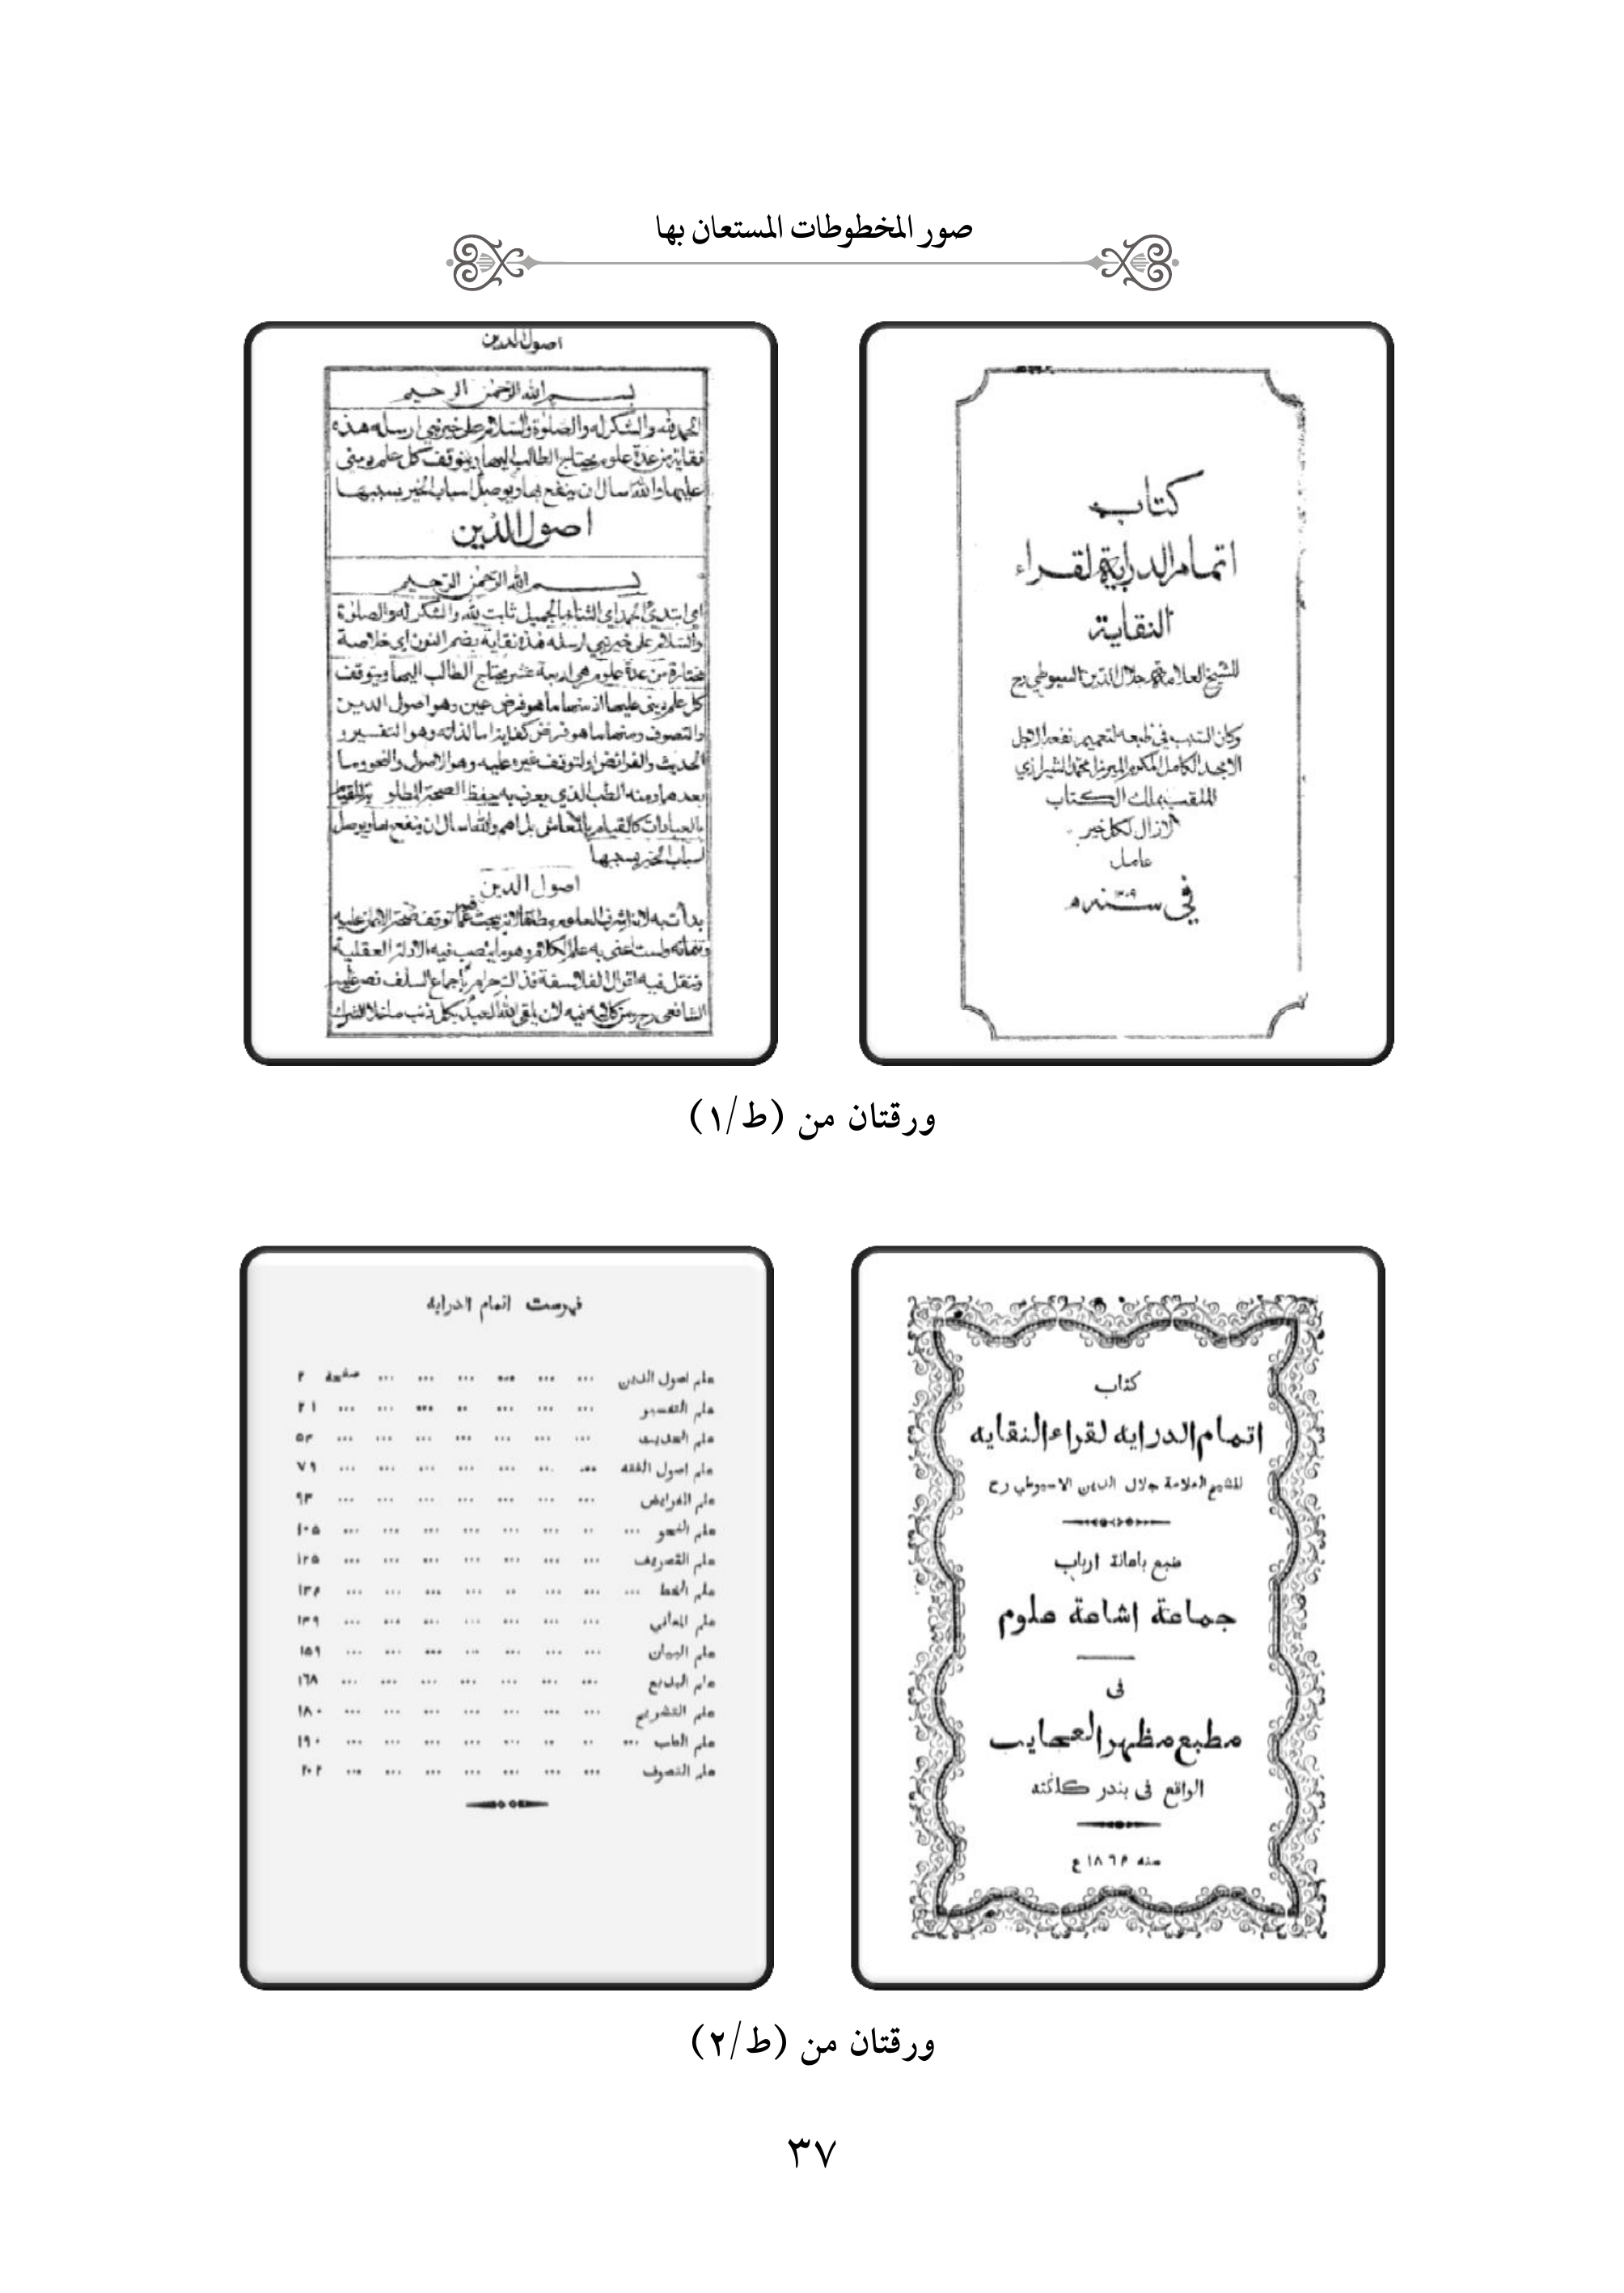 صور المخطوطات المستعان بها
كتاب
اتمام الدراية لقراء
النقاية
للشيخ العلامة جلال الدين السيوطي رح
وكان السبب في طبعه لتعميم نفعه الاجل
الامجد الكامل المكرم الميرزا محمد الشيرازي
الملقب بملك الكتاب
لازال لكل خير
عامل
في سنه ١٣٠٩
اصول الدين
بسم الله الرحمن الرحيم
الحمد لله والشكر له والصلوة والسلام على خير نبي ارسله هذه
نقاية من عدة علوم يحتاج الطالب اليها ويتوقف كل علم ديني
عليها والله اسال ان ينفع بها ويوصل اسباب الخير بسببها
اصول الدين
بسم الله الرحمن الرحيم
اي ابتدئ الحمد اي الثناء بالجميل ثابت لله والشكر له والصلوة
والسلام على خير نبي ارسله هذه نقاية بضم النون اي خلاصة
مختارة من عدة علوم هي اربعة عشر يحتاج الطالب اليها ويتوقف
كل علم ديني عليها اذ منها ما هو فرض عين وهو اصول الدين
والتصوف ومنها ما هو فرض كفاية اما لذاته وهو التفسير و
الحديث والفرائض او لتوقف غيره عليه وهو الاصول والنحو وما
بعدهما ومنه الطب الذي يعرف به حفظ الصحة المطلو
بالعبادات كالقيام بالمعاش بل اهم والله اسال ان ينفع بها ويوصل
اسباب الخير بسببها
اصول الدين
بدأت به لانه اشرف العلوم مطلقا لانه يبحث عما توقف صحة الايمان عليه
وتتماته ولست اعني به علم الكلام وهو ما ينصب فيه الادلة العقلية
وتنقل فيه اقوال الفلاسفة فذلك حرام باجماع السلف نص عليه
الشافعي رح ومن كلامه فيه لان يلقى الله العبد بكل ذنب ما خلا الشرك
ورقتان من (ط/١)
كتاب
اتمام الدرايه لقراء النقايه
للشيخ العلامة جلال الدين الاسيوطي رح
طبع باعانة ارباب
جماعة اشاعة علوم
فى
مطبع مظهر العجايب
الواقع فى بندر كلكته
سنه ١٨٦٤ ع
فهرست اتمام الدرايه
علم اصول الدين ... ... ... ... ... ... صفحة ٢
علم التفسير ... ... ... ... ... ... ... ٢١
علم الحديث ... ... ... ... ... ... ... ٥٣
علم اصول الفقه ... ... ... ... ... ... ... ٧٩
علم الفرايض ... ... ... ... ... ... ... ٩٣
علم النحو ... ... ... ... ... ... ... ... ١٠٥
علم التصريف ... ... ... ... ... ... ... ١٢٥
علم الخط ... ... ... ... ... ... ... ... ١٣٤
علم المعاني ... ... ... ... ... ... ... ١٣٩
علم البيان ... ... ... ... ... ... ... ١٥٩
علم البديع ... ... ... ... ... ... ... ١٦٨
علم التشريح ... ... ... ... ... ... ... ١٨٠
علم الطب ... ... ... ... ... ... ... ... ١٩٠
علم التصوف ... ... ... ... ... ... ... ٢٠٢
ورقتان من (ط/٢)
٣٧